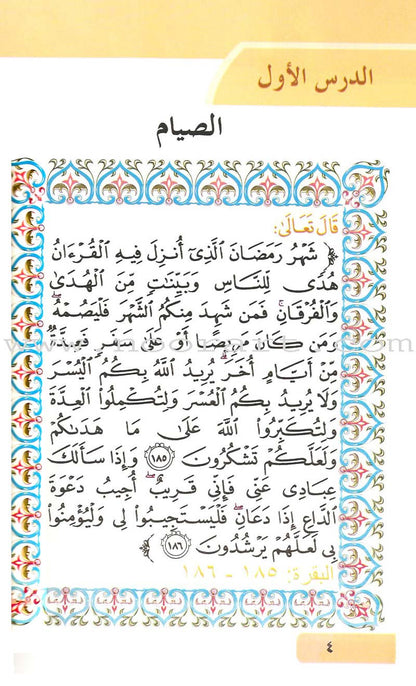 الدرس الأول
الصيام
قَالَ تَعَالَىٰ:
﴿ شَهْرُ رَمَضَانَ ٱلَّذِىٓ أُنزِلَ فِيهِ ٱلْقُرْءَانُ
هُدًى لِّلنَّاسِ وَبَيِّنَٰتٍ مِّنَ ٱلْهُدَىٰ
وَٱلْفُرْقَانِۚ فَمَن شَهِدَ مِنكُمُ ٱلشَّهْرَ فَلْيَصُمْهُۖ
وَمَن كَانَ مَرِيضًا أَوْ عَلَىٰ سَفَرٍ فَعِدَّةٌ
مِّنْ أَيَّامٍ أُخَرَۗ يُرِيدُ ٱللَّهُ بِكُمُ ٱلْيُسْرَ
وَلَا يُرِيدُ بِكُمُ ٱلْعُسْرَ وَلِتُكْمِلُوا۟ ٱلْعِدَّةَ
وَلِتُكَبِّرُوا۟ ٱللَّهَ عَلَىٰ مَا هَدَىٰكُمْ
وَلَعَلَّكُمْ تَشْكُرُونَ ١٨٥ وَإِذَا سَأَلَكَ
عِبَادِى عَنِّى فَإِنِّى قَرِيبٌۖ أُجِيبُ دَعْوَةَ
ٱلدَّاعِ إِذَا دَعَانِۖ فَلْيَسْتَجِيبُوا۟ لِى وَلْيُؤْمِنُوا۟
بِى لَعَلَّهُمْ يَرْشُدُونَ ١٨٦ ﴾
البقرة: ١٨٥ - ١٨٦
٤